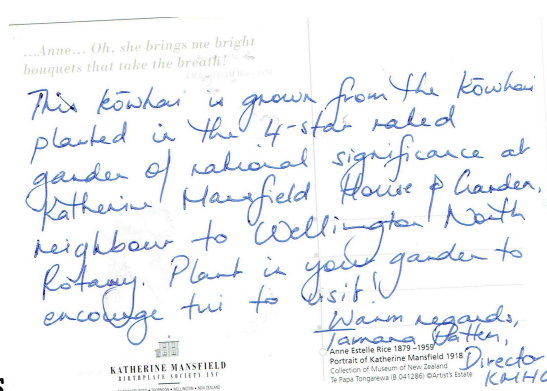 ...Anne... Oh, she brings me bright
bouquets that take the breath!
This kōwhai is grown from the kōwhai
planted in the 4-star rated
garden of national significance at
Katherine Mansfield House & Garden,
neighbour to Wellington North
Rotary. Plant in your garden to
encourage tui to visit!
Warm regards,
Tamara Patten,
Director
KMHG
Anne Estelle Rice 1879 –1959
Portrait of Katherine Mansfield 1918
Collection of Museum of New Zealand
Te Papa Tongarewa (B.041286) ©Artist's Estate
KATHERINE MANSFIELD
BIRTHPLACE SOCIETY INC